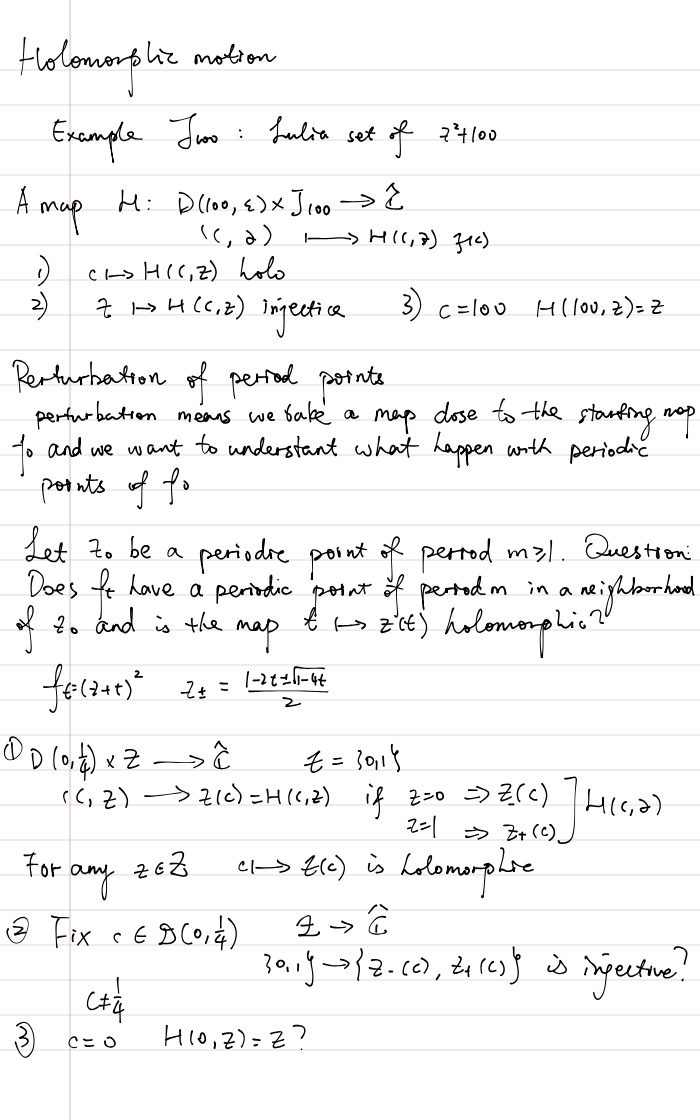 Holomorphic motion
Example J₁₀₀ : Julia set of z²+100
A map H: D(100, ε) × J₁₀₀ → Ĉ
(c, z) ⟼ H(c, z) z(c)
1) c ↦ H(c, z) holo
2) z ↦ H(c, z) injective 3) c=100 H(100, z)=z
Perturbation of period points
perturbation means we take a map close to the starting map
f₀ and we want to understant what happen with periodic
points of f₀
Let z₀ be a periodic point of period m≥1. Question:
Does fₜ have a periodic point of period m in a neighborhood
of z₀ and is the map t ↦ z(t) holomorphic?
fₜ=(z+t)² z± = (1-2t±√(1-4t))/2
① D(0, 1/4) × Z → Ĉ Z = {0,1}
(c, z) → z(c)=H(c,z) if z=0 ⇒ z₋(c) ] H(c,z)
z=1 ⇒ z₊(c)
For any z∈Z c ↦ z(c) is holomorphic
② Fix c ∈ D(0, 1/4) Z → Ĉ
{0,1} → {z₋(c), z₊(c)} is injective?
c≠1/4
③ c=0 H(0, z)=z?